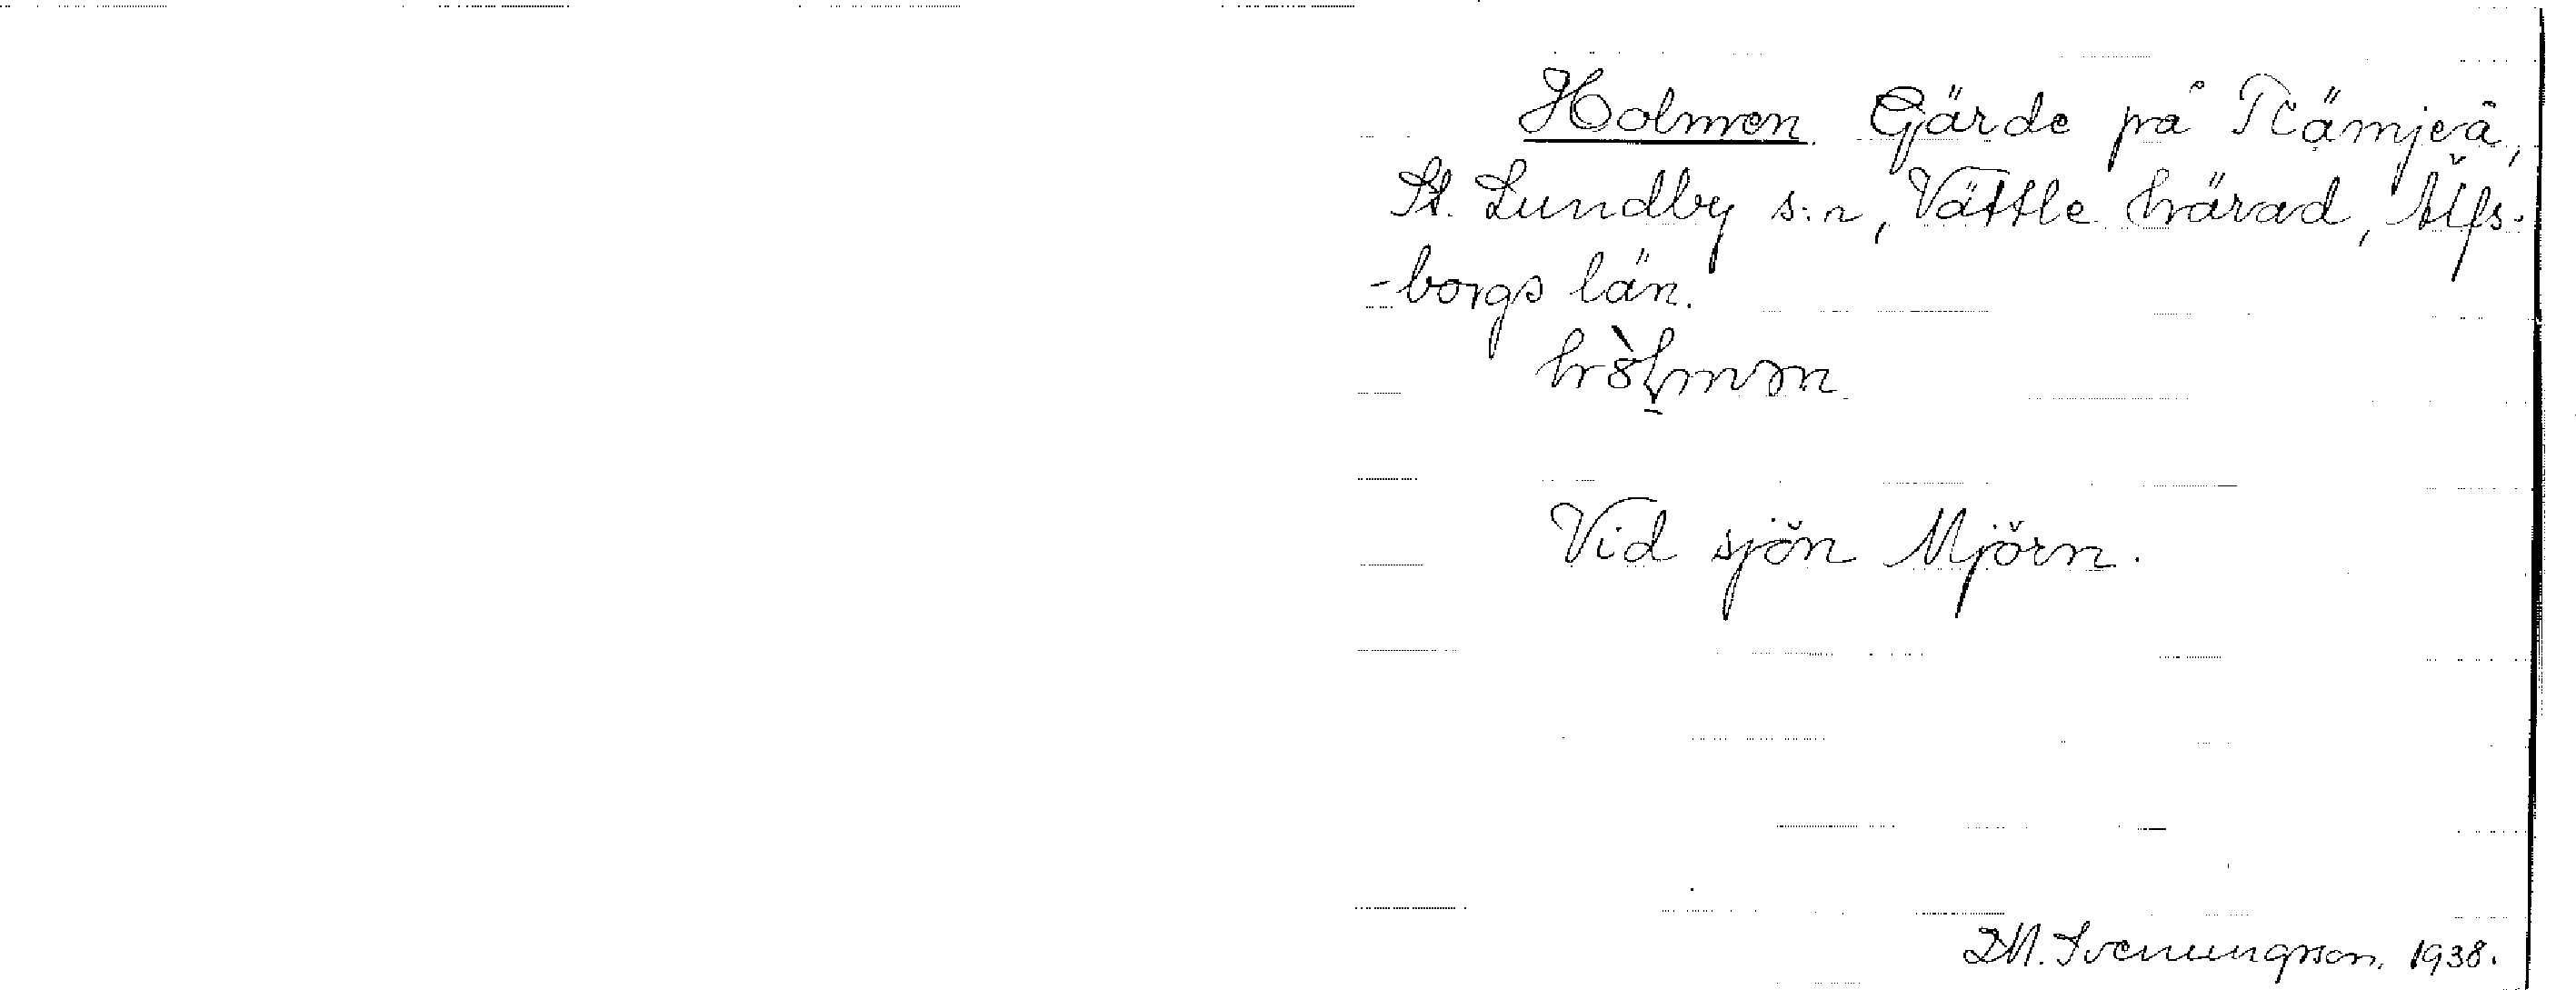 Holmen. Gärde på Tämjeå,
St. Lundby s:n, Vättle härad, Älfs-
-borgs län.
Vid sjön Mjörn.
D.M. Svenungsson, 1938.